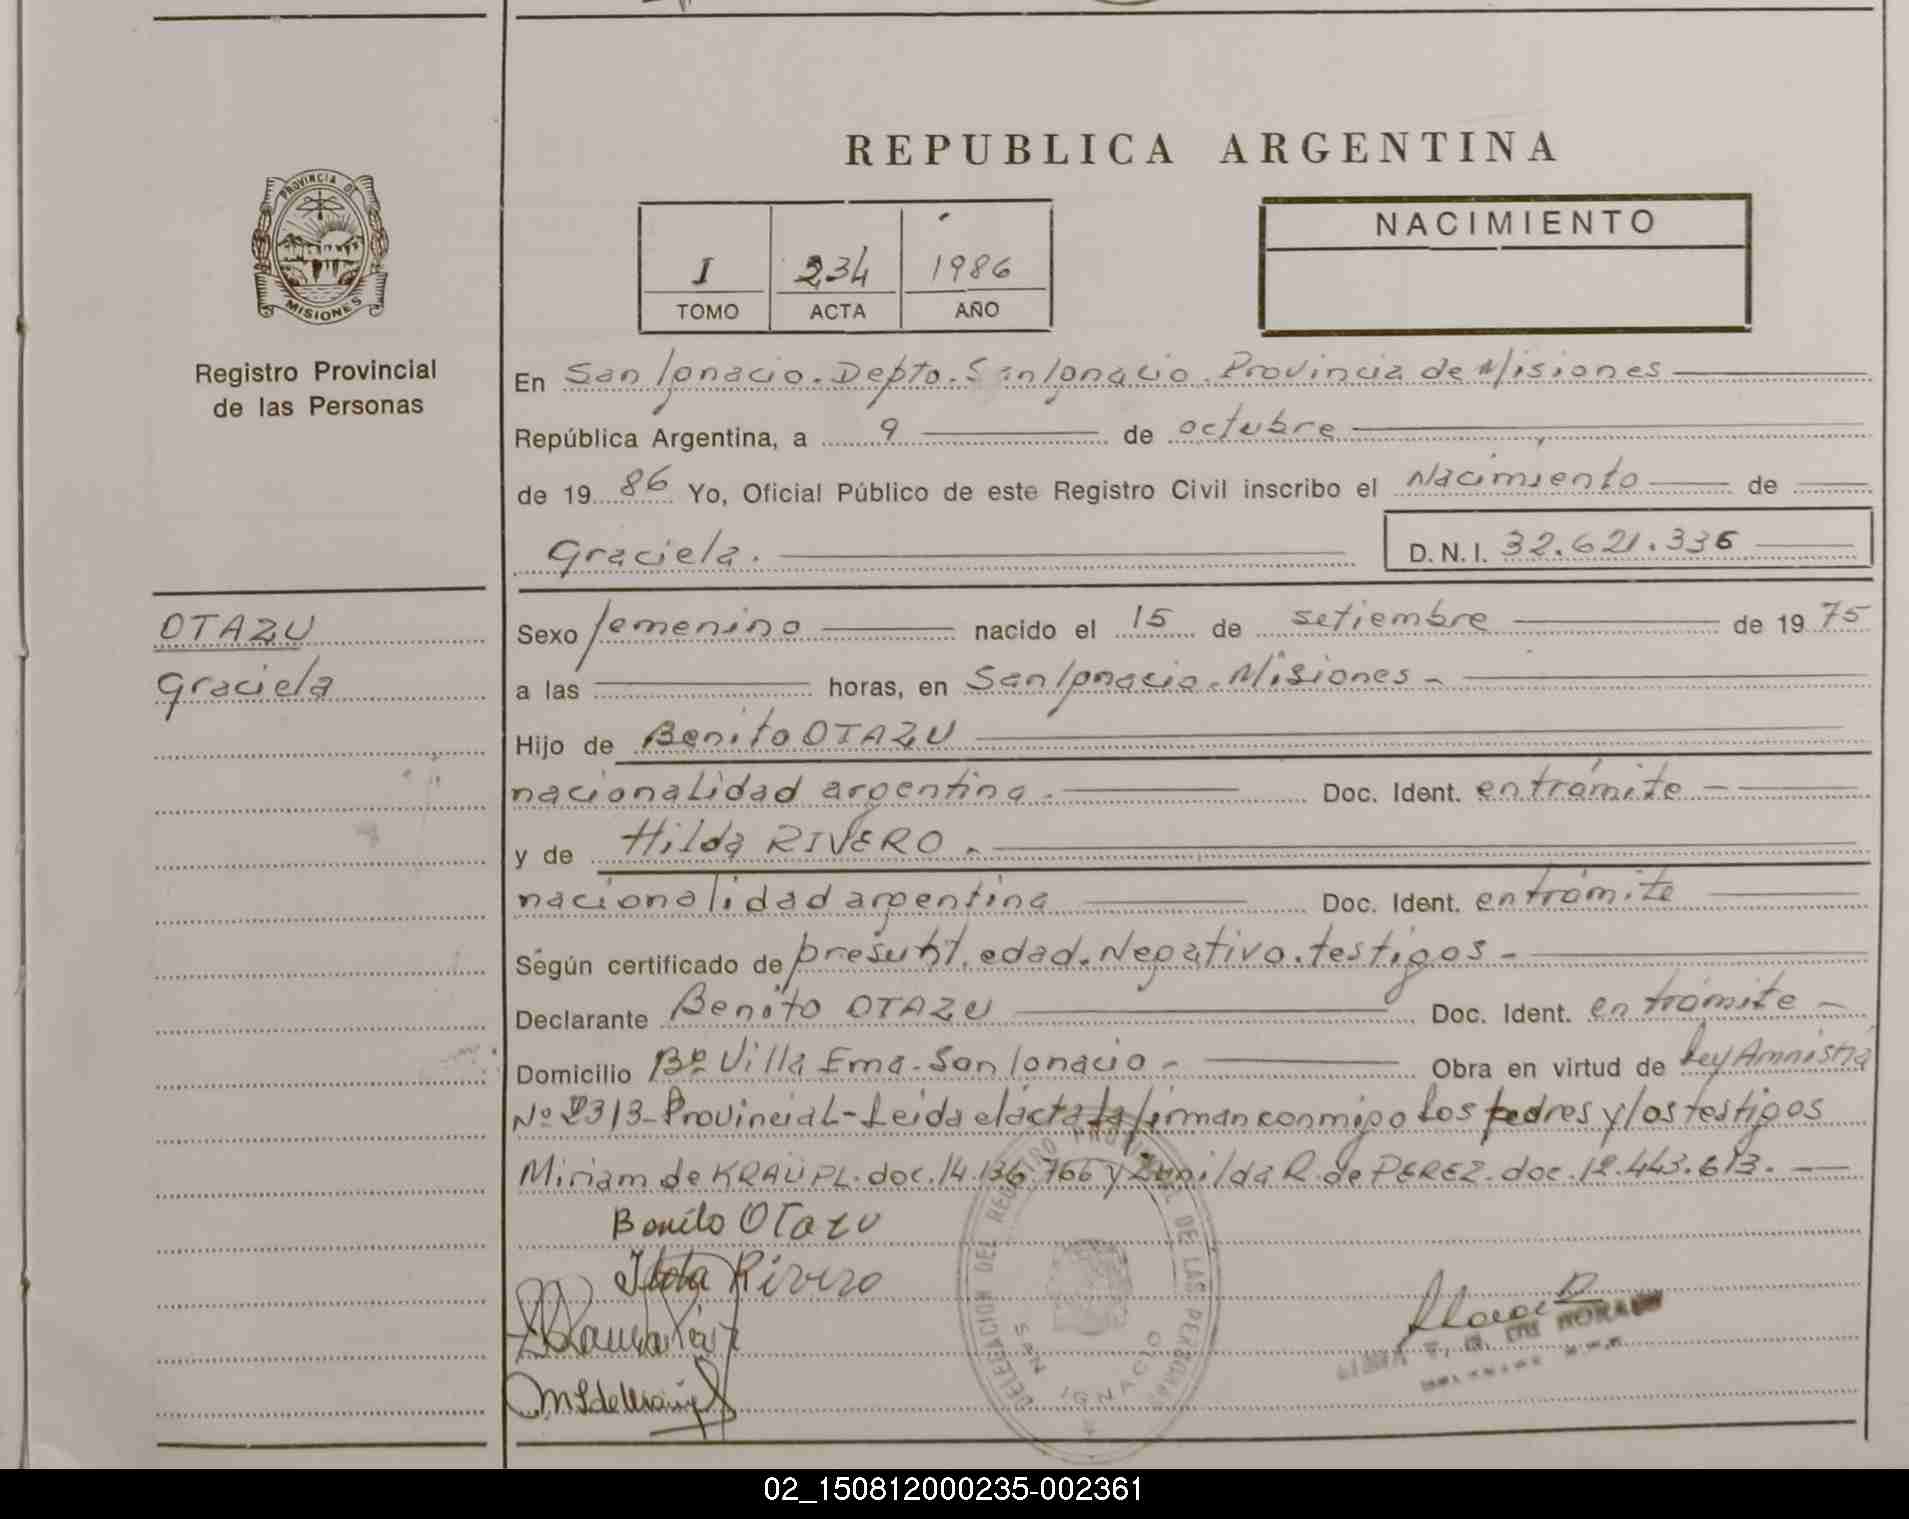 REPUBLICA ARGENTINA
PROVINCIA DE
MISIONES
Registro Provincial
de las Personas
I 234 1986
TOMO ACTA AÑO
NACIMIENTO
En San Ignacio. Depto. San Ignacio. Provincia de Misiones
República Argentina, a 9 de octubre
de 19 86 Yo, Oficial Público de este Registro Civil inscribo el Nacimiento de
Graciela. D.N.I. 32.621.336
OTAZU
Graciela
Sexo femenino nacido el 15 de setiembre de 19 75
a las horas, en San Ignacio. Misiones -
Hijo de Benito OTAZU
nacionalidad argentina. Doc. Ident. en trámite -
y de Hilda RIVERO.
nacionalidad argentina Doc. Ident. en trámite
Según certificado de edad. Negativo. testigos -
Declarante Benito OTAZU Doc. Ident. en trámite -
Domicilio Bº Villa Ema. San Ignacio - Obra en virtud de Ley Amnistia
Nº 2313- Provincial - Leida el acta la firman conmigo los padres y los testigos
Miriam de KRAUPL. doc. 14.136.766 y Zunilda R. de PEREZ. doc. 12.443.613. -
Benito OTazu
Rivero
DELEGACION DEL REGISTRO PROVINCIAL DE LAS PERSONAS
SAN IGNACIO
02_150812000235-002361